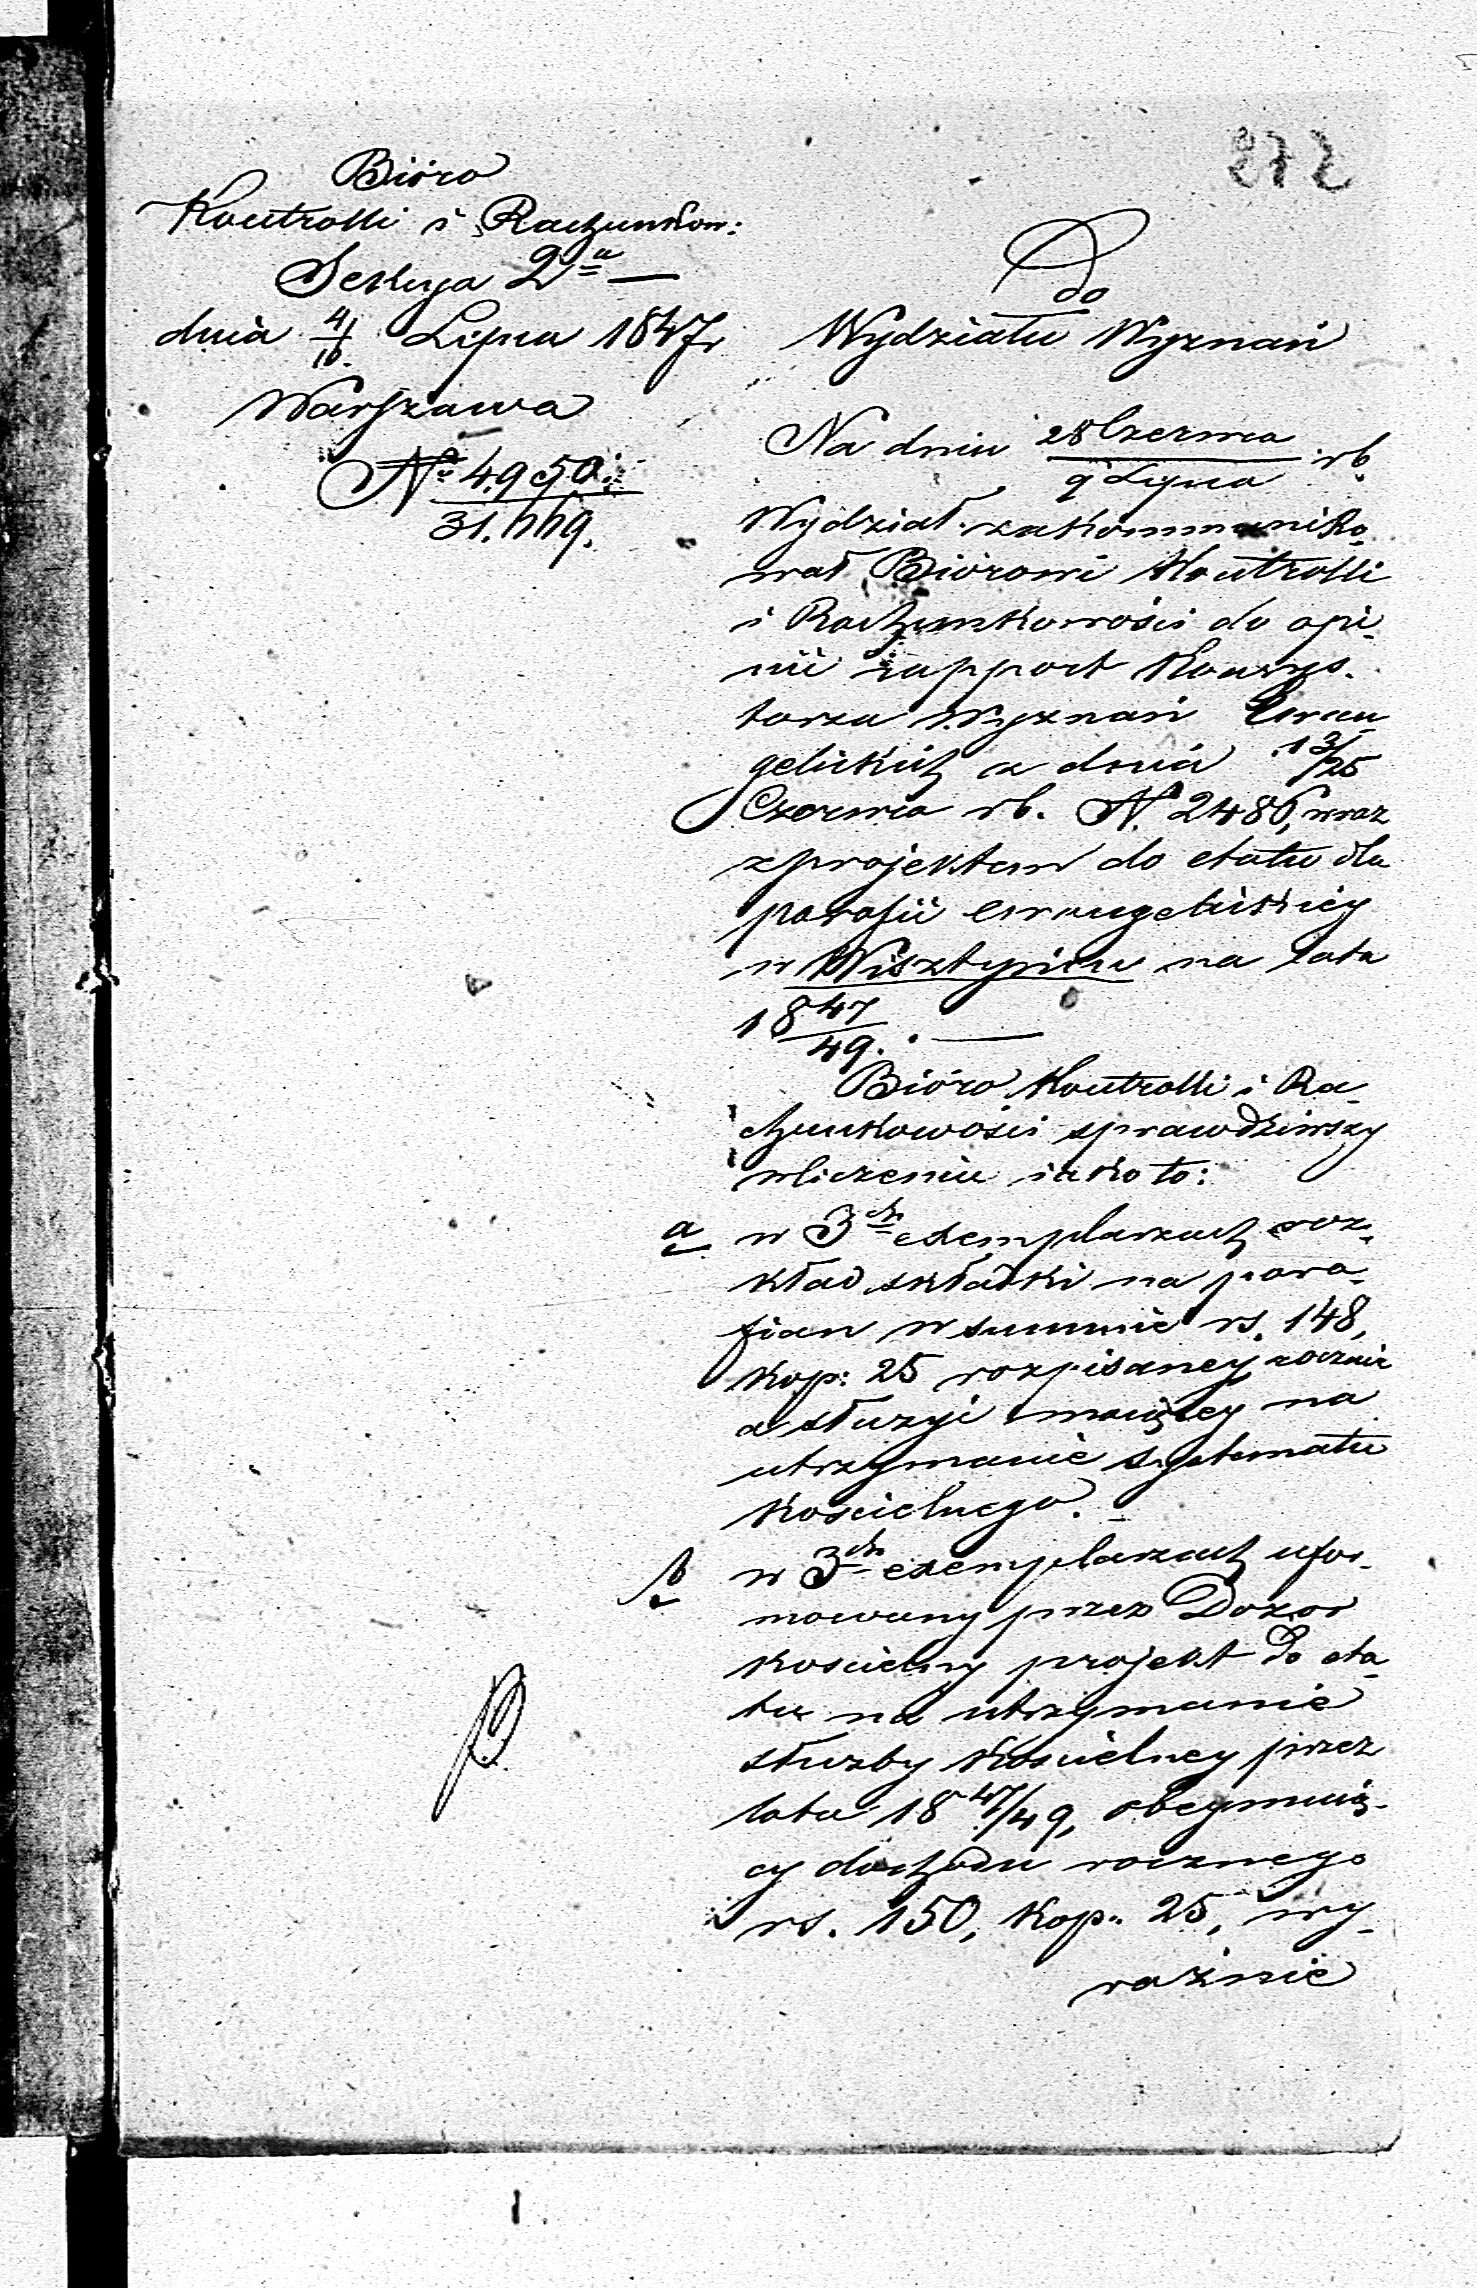 272
Bióro
Kontrolli i Rachunkow:
Sekcya 2a
dnia 4/16. Lipca 1847r
Warszawa
No 4950:
31.449.
Do
Wydziału Wyznań
Na dniu 28 Czerwca rb.
9 Lipca
Wydział zakommuniko-
wał Biórowi Kontrolli
i Rachunkowości do opi-
nii rapport Konsys-
torza Wyznań Ewan-
gelickich z dnia 13/25
Czerwca rb. No. 2486, wraz
z projektem do etatu dla
parafii ewangelickiey
w Wisztyńcu na lata
18 47/49.
Bióro Kontrolli i Ra-
chunkowości sprawdziwszy
w liczeniu iako to:
a w 3ch exemplarzach roz-
kład składki na para-
fian w summie rs. 148,
kop: 25 rozpisaney rocznie
a służyć maiącey na
utrzymanie systematu
Kościelnego.
b w 3ch exemplarzach ufor-
mowany przez Dozór
kościelny projekt do eta-
tu na utrzymanie
służby Kościelney przez
lata 18 47/49, obeymuią-
cy dochodu rocznego
rs. 150, Kop: 25, wy-
raźnie